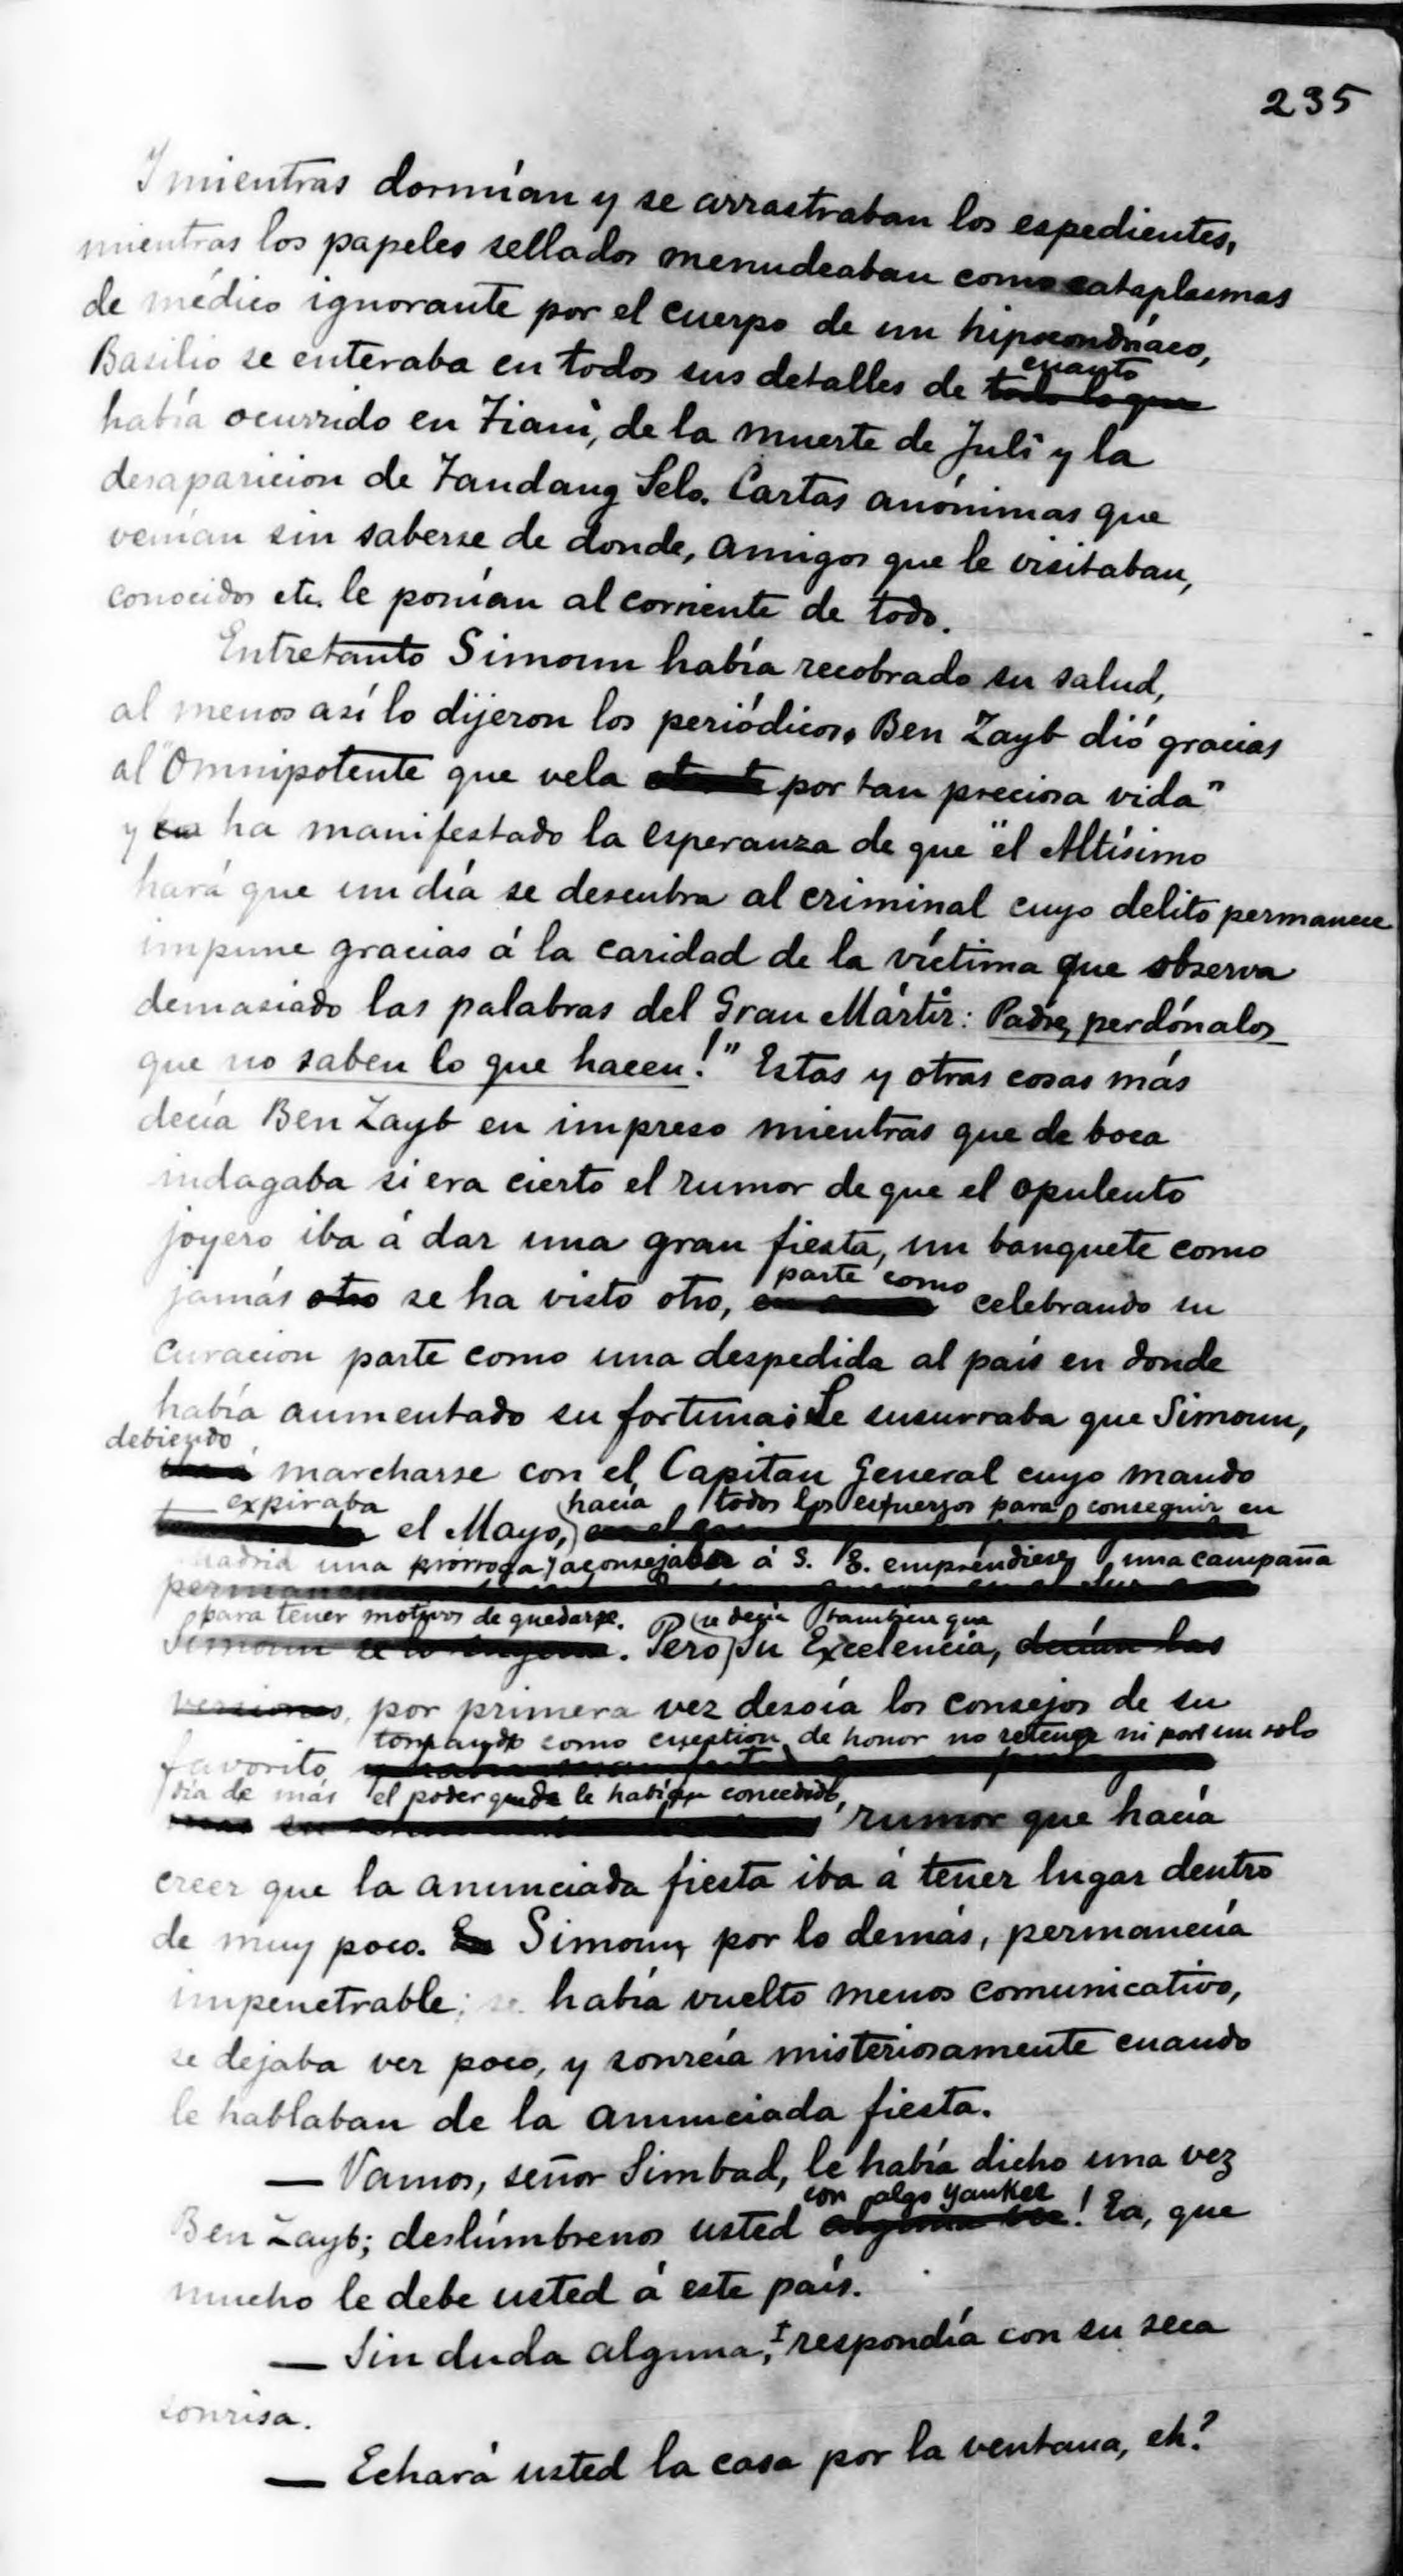 235
Y mientras dormían y se arrastraban los espedientes,
mientras los papeles sellados menudeaban como cataplasmas
de médico ignorante por el cuerpo de un hipocondríaco,
Basilio se enteraba en todos sus detalles de todo lo que
cuanto
había ocurrido en Tianì, de la muerte de Julî y la
desaparicion de Tandang Selo. Cartas anónimas que
venían sin saberse de donde, amigos que le visitaban,
conocidos etc. le ponían al corriente de todo.
Entretanto Simoun había recobrado su salud,
al menos así lo dijeron los periódicos. Ben Zayb dió gracias
al "Omnipotente que vela por tan preciosa vida"
y ha manifestado la esperanza de que "el Altísimo
hará que un día se descubra al criminal cuyo delito permanece
impune gracias á la caridad de la víctima que observa
demasiado las palabras del Gran Mártir: Padre, perdónalos
que no saben lo que hacen!" Estas y otras cosas más
decía Ben Zayb en impreso mientras que de boca
indagaba si era cierto el rumor de que el opulento
joyero iba á dar una gran fiesta, un banquete como
parte como
jamás otro se ha visto otro, celebrando su
curacion parte como una despedida al país en donde
había aumentado su fortuna. Se susurraba que Simoun,
debiendo
marcharse con el Capitan General cuyo mando
expiraba hacía todos los esfuerzos para conseguir en
el Mayo,
Madrid una prórroga y aconsejaba á S. E. emprendiese una campaña
para tener motivos de quedarse. se decía tambien que
Simoun. Pero Su Excelencia, decían las
versiones, por primera vez desoía los consejos de su
tomando como cuestion de honor no retener ni por un solo
favorito
día de más el poder que le habían concedido,
rumor que hacía
creer que la anunciada fiesta iba á tener lugar dentro
de muy poco. Simoun, por lo demás, permanecía
impenetrable; se había vuelto menos comunicativo,
se dejaba ver poco, y sonreía misteriosamente cuando
le hablaban de la anunciada fiesta.
— Vamos, señor Simbad, le había dicho una vez
con algo yankee
Ben Zayb; deslúmbrenos usted ! Ea, que
mucho le debe usted á este país.
— Sin duda alguna, respondía con su seca
sonrisa.
— Echará usted la casa por la ventana, eh?